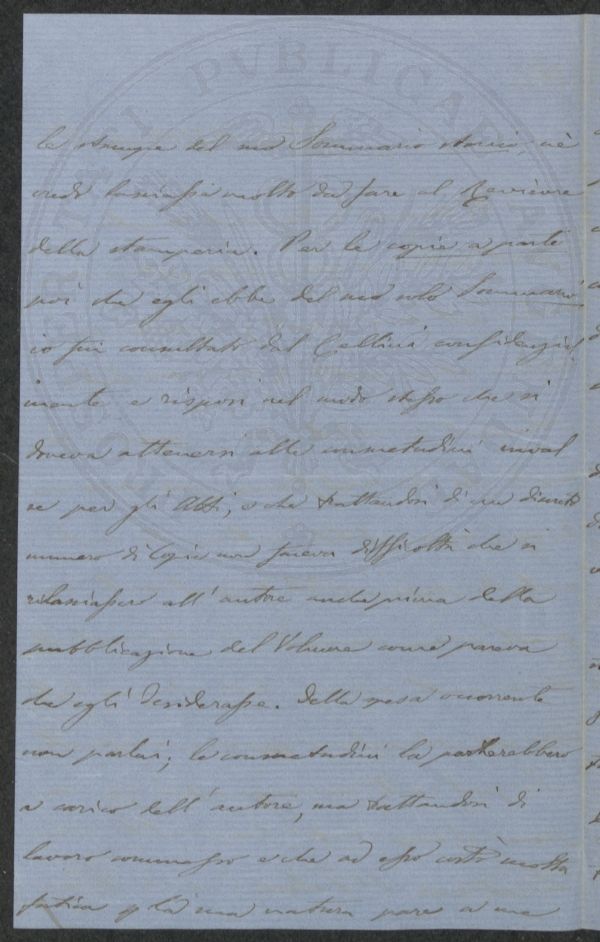 le stampe del suo Sommario storico, nè
credo lasciasse molto da fare al Revisore
della stamperia. Per le copie a parte
poi che egli ebbe del suo solo Sommario,
io fui consultato dal Cellini confidenzial
mente e risposi nel modo stesso che si
doveva attenersi alle consuetudini inval
se per gli Atti, e che trattandosi di un discreto
numero di Copie non faceva difficoltà che si
rilasciassero all'autore anche prima della
pubblicazione del Volume come pareva
che egli desiderasse. Della spesa occorrente
non parlai; le consuetudini la porterebbero
a carico dell'autore, ma trattandosi di
lavoro commesso e che ad esso costò molta
fatica p la sua natura pare a me